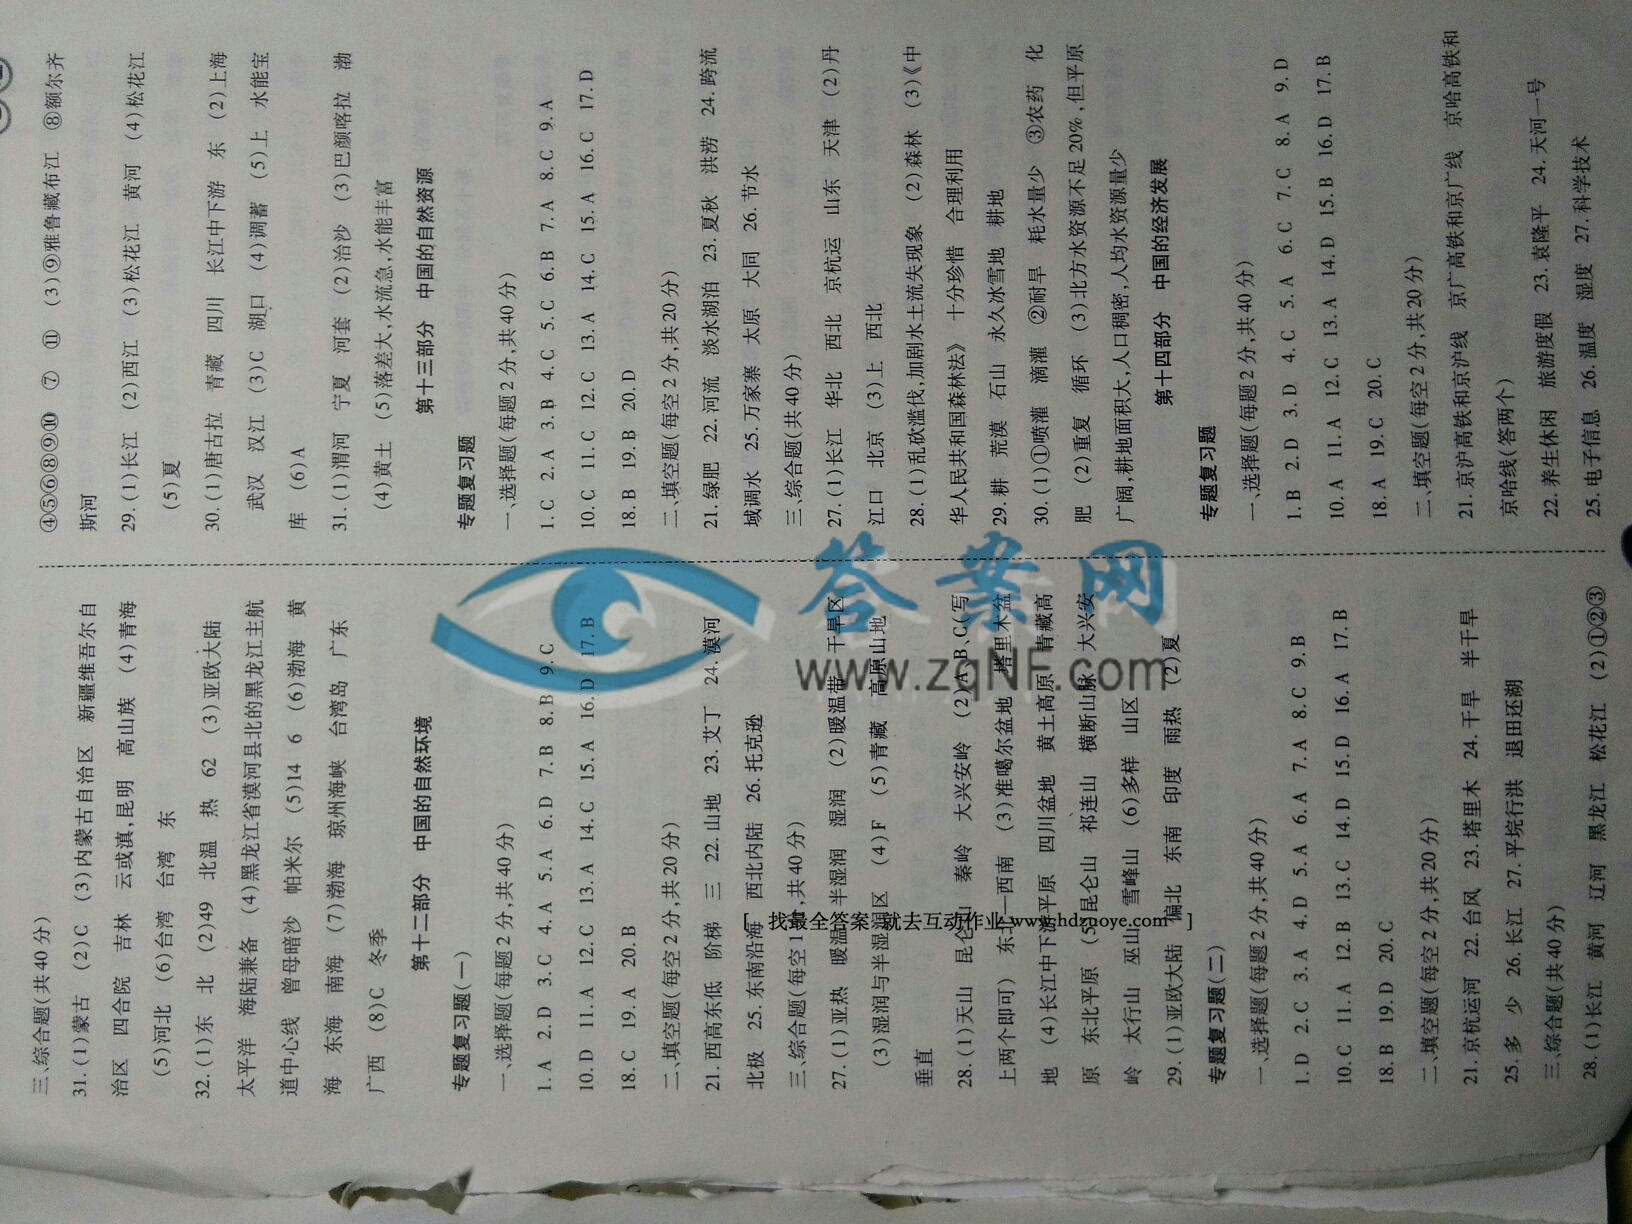 三、综合题(共40分)
31.(1)蒙古 (2)C (3)内蒙古自治区 新疆维吾尔自
治区 四合院 吉林 云或滇,昆明 高山族 (4)青海
(5)河北 (6)台湾 台湾 东
32.(1)东 北 (2)49 北温 热 62 (3)亚欧大陆
太平洋 海陆兼备 (4)黑龙江省漠河县北的黑龙江主航
道中心线 曾母暗沙 帕米尔 (5)14 6 (6)渤海 黄
海 东海 南海 (7)渤海 琼州海峡 台湾岛 广东
广西 (8)C 冬季
第十二部分 中国的自然环境
专题复习题(一)
一、选择题(每题2分,共40分)
1.A 2.D 3.C 4.A 5.A 6.D 7.B 8.B 9.C
10.D 11.A 12.C 13.A 14.C 15.A 16.D 17.B
18.C 19.A 20.B
二、填空题(每空2分,共20分)
21.西高东低 阶梯 三 22.山地 23.艾丁 24.漠河
北极 25.东南沿海 西北内陆 26.托克逊
三、综合题(每空1分,共40分)
27.(1)亚热 暖温 半湿润 湿润 (2)暖温带 干旱区
(3)湿润与半湿润区 (4)F (5)青藏 高原山地
垂直
28.(1)天山 昆仑山 秦岭 大兴安岭 (2)A、B、C(写
上两个即可) 东北—西南 (3)准噶尔盆地 塔里木盆
地 (4)长江中下游平原 四川盆地 黄土高原 青藏高
原 东北平原 (5)昆仑山 祁连山 横断山脉 大兴安
岭 太行山 巫山 雪峰山 (6)多样 山区
29.(1)亚欧大陆 偏北 东南 印度 雨热 (2)夏
专题复习题(二)
一、选择题(每题2分,共40分)
1.D 2.C 3.A 4.D 5.A 6.A 7.A 8.C 9.B
10.C 11.A 12.B 13.C 14.D 15.D 16.A 17.B
18.B 19.D 20.C
二、填空题(每空2分,共20分)
21.京杭运河 22.台风 23.塔里木 24.干旱 半干旱
25.多 少 26.长江 27.平垸行洪 退田还湖
三、综合题(共40分)
28.(1)长江 黄河 辽河 黑龙江 松花江 (2)①②③
④⑤⑥⑧⑨⑩ ⑦ ⑪ (3)⑨雅鲁藏布江 ⑧额尔齐
斯河
29.(1)长江 (2)西江 (3)松花江 黄河 (4)松花江
(5)夏
30.(1)唐古拉 青藏 四川 长江中下游 东 (2)上海
武汉 汉江 (3)C 湖口 (4)调蓄 (5)上 水能宝
库 (6)A
31.(1)渭河 宁夏 河套 (2)治沙 (3)巴颜喀拉 渤
(4)黄土 (5)落差大,水流急,水能丰富
第十三部分 中国的自然资源
专题复习题
一、选择题(每题2分,共40分)
1.C 2.A 3.B 4.C 5.C 6.B 7.A 8.C 9.A
10.C 11.C 12.C 13.A 14.C 15.A 16.C 17.D
18.B 19.B 20.D
二、填空题(每空2分,共20分)
21.绿肥 22.河流 淡水湖泊 23.夏秋 洪涝 24.跨流
域调水 25.万家寨 太原 大同 26.节水
三、综合题(共40分)
27.(1)长江 华北 西北 京杭运 山东 天津 (2)丹
江口 北京 (3)上 西北
28.(1)乱砍滥伐,加剧水土流失现象 (2)森林 (3)《中
华人民共和国森林法》 十分珍惜 合理利用
29.耕 荒漠 石山 永久冰雪地 耕地
30.(1)①喷灌 滴灌 ②耐旱 耗水量少 ③农药 化
肥 (2)重复 循环 (3)北方水资源不足20%,但平原
广阔,耕地面积大,人口稠密,人均水资源量少
第十四部分 中国的经济发展
专题复习题
一、选择题(每题2分,共40分)
1.B 2.D 3.D 4.C 5.A 6.C 7.C 8.A 9.D
10.A 11.A 12.C 13.A 14.D 15.B 16.D 17.B
18.A 19.C 20.C
二、填空题(每空2分,共20分)
21.京沪高铁和京沪线 京广高铁和京广线 京哈高铁和
京哈线(答两个)
22.养生休闲 旅游度假 23.袁隆平 24.天河一号
25.电子信息 26.温度 湿度 27.科学技术
答案网
www.zqNF.com
[ 找最全答案 就去互动作业 www.hdzuoye.com ]